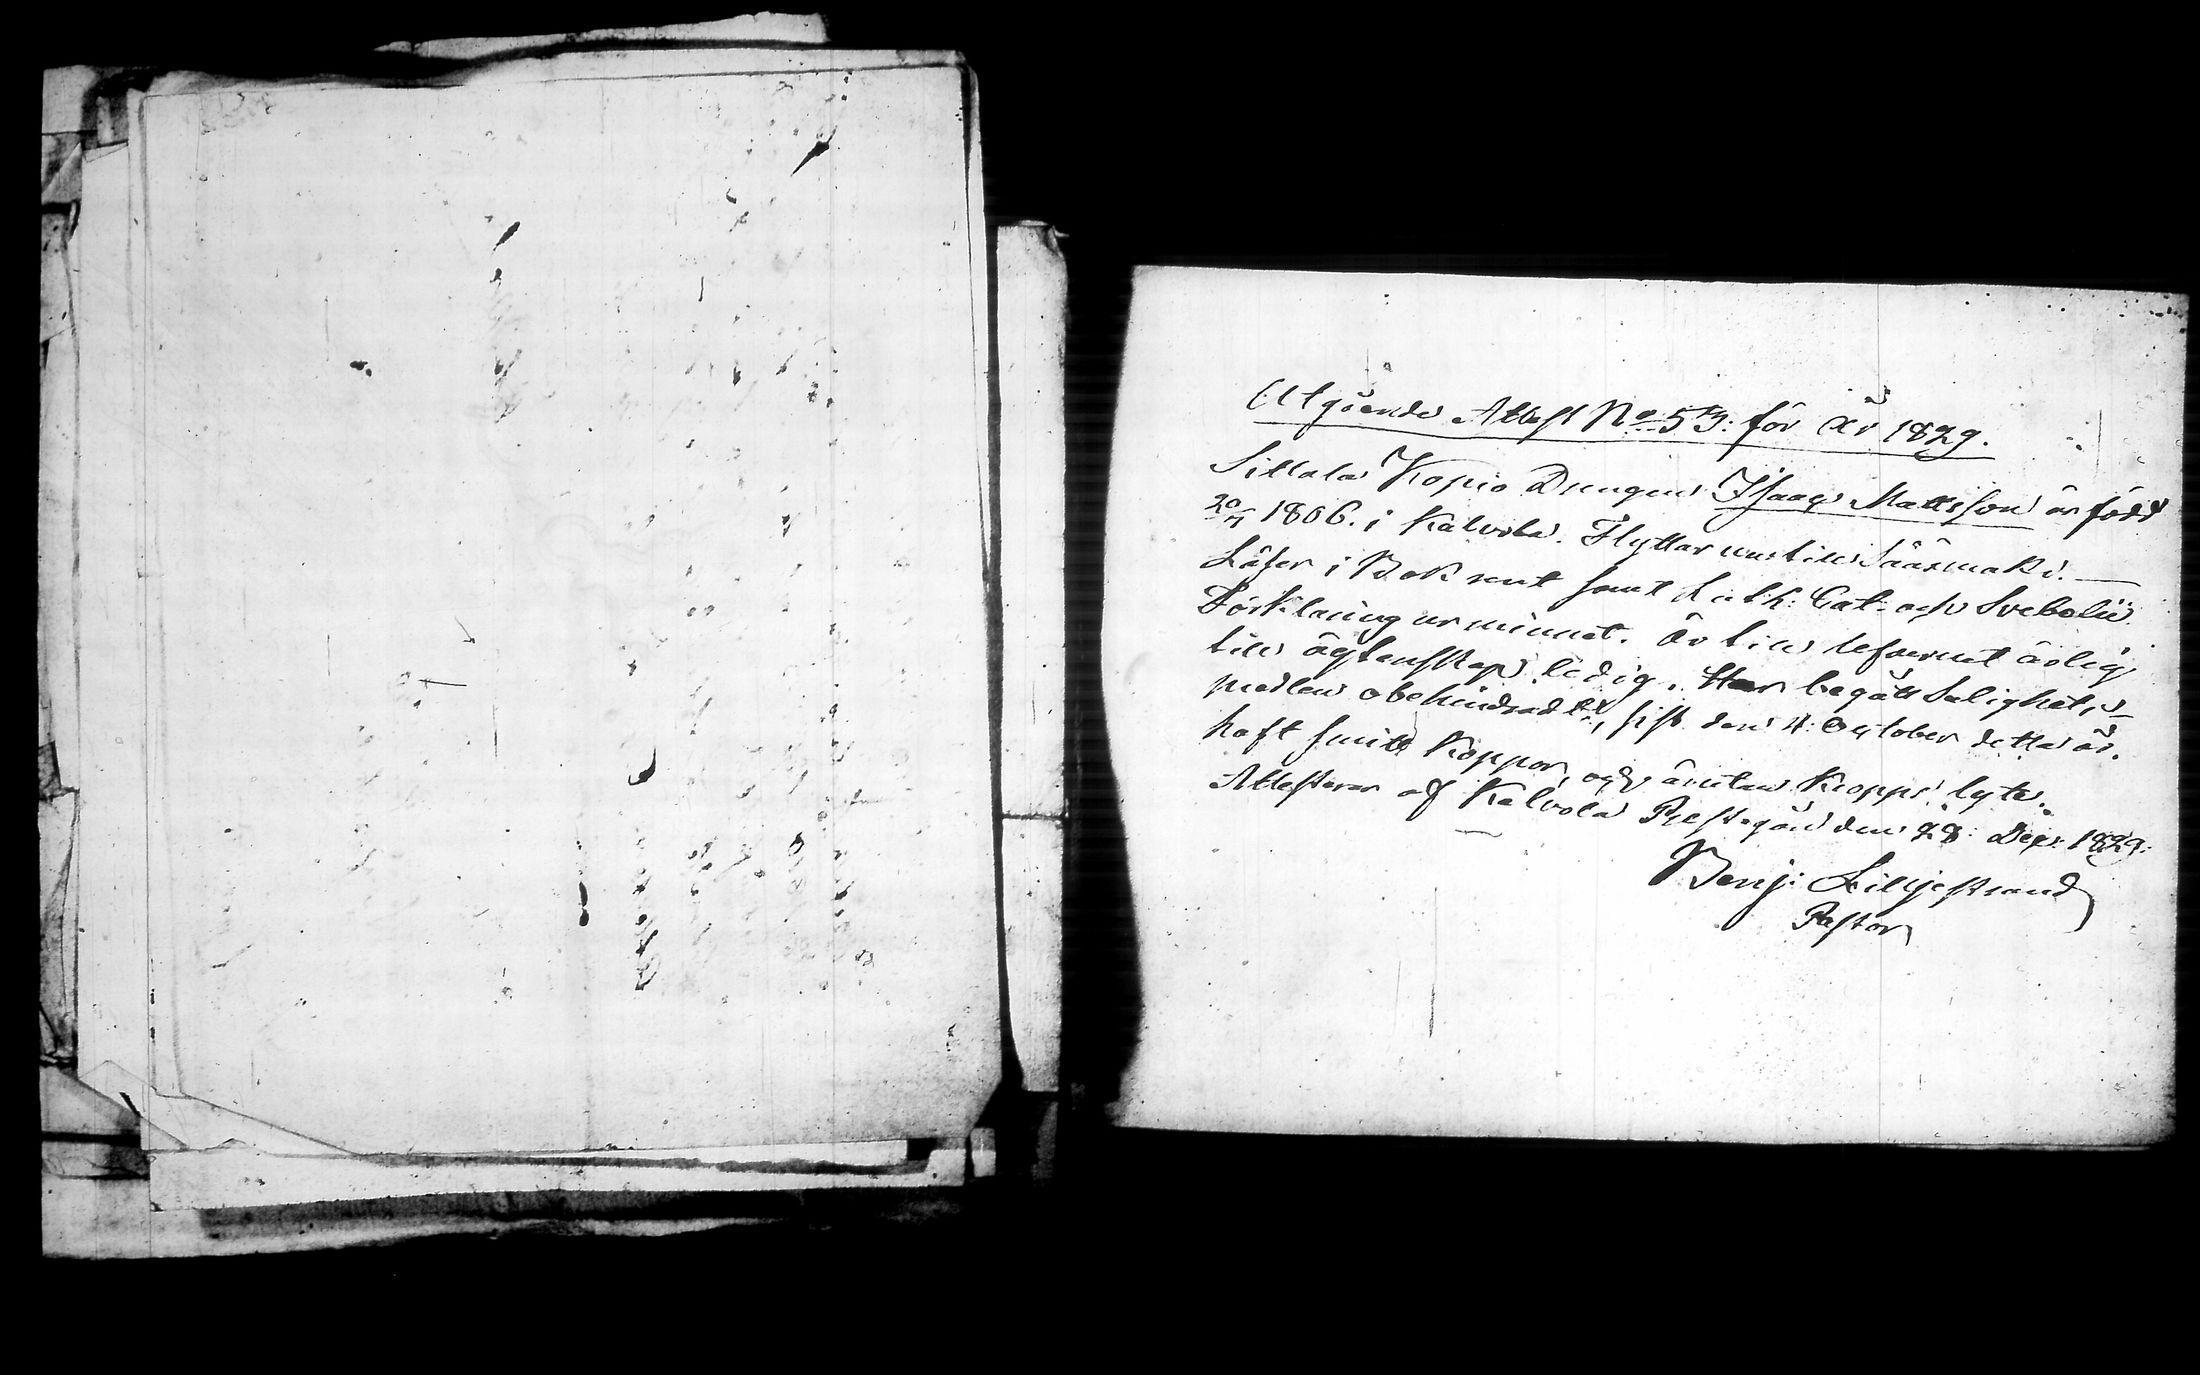 Utgående Attest No 53: för År 1829.
Sittala Kopio Drengen Isaac Mattsson är född
20/7 1806. i Kalvola. Flyttar nu till Sääxmäki. —
Läser i Bok rent samt Luth: Cat: och Svebelii
Förklaring ur minnet. Är till lefvernet ärlig
till ägtenskap ledig. Har begått Salighets
medlen obehindradt, sist den 4 October detta år.
haft Koppor, och är utan Kropps lyte.
Attesterar af Kalvola Prestegård den 28: Dec: 1829:
Benj: Lilljestrand
Pastor